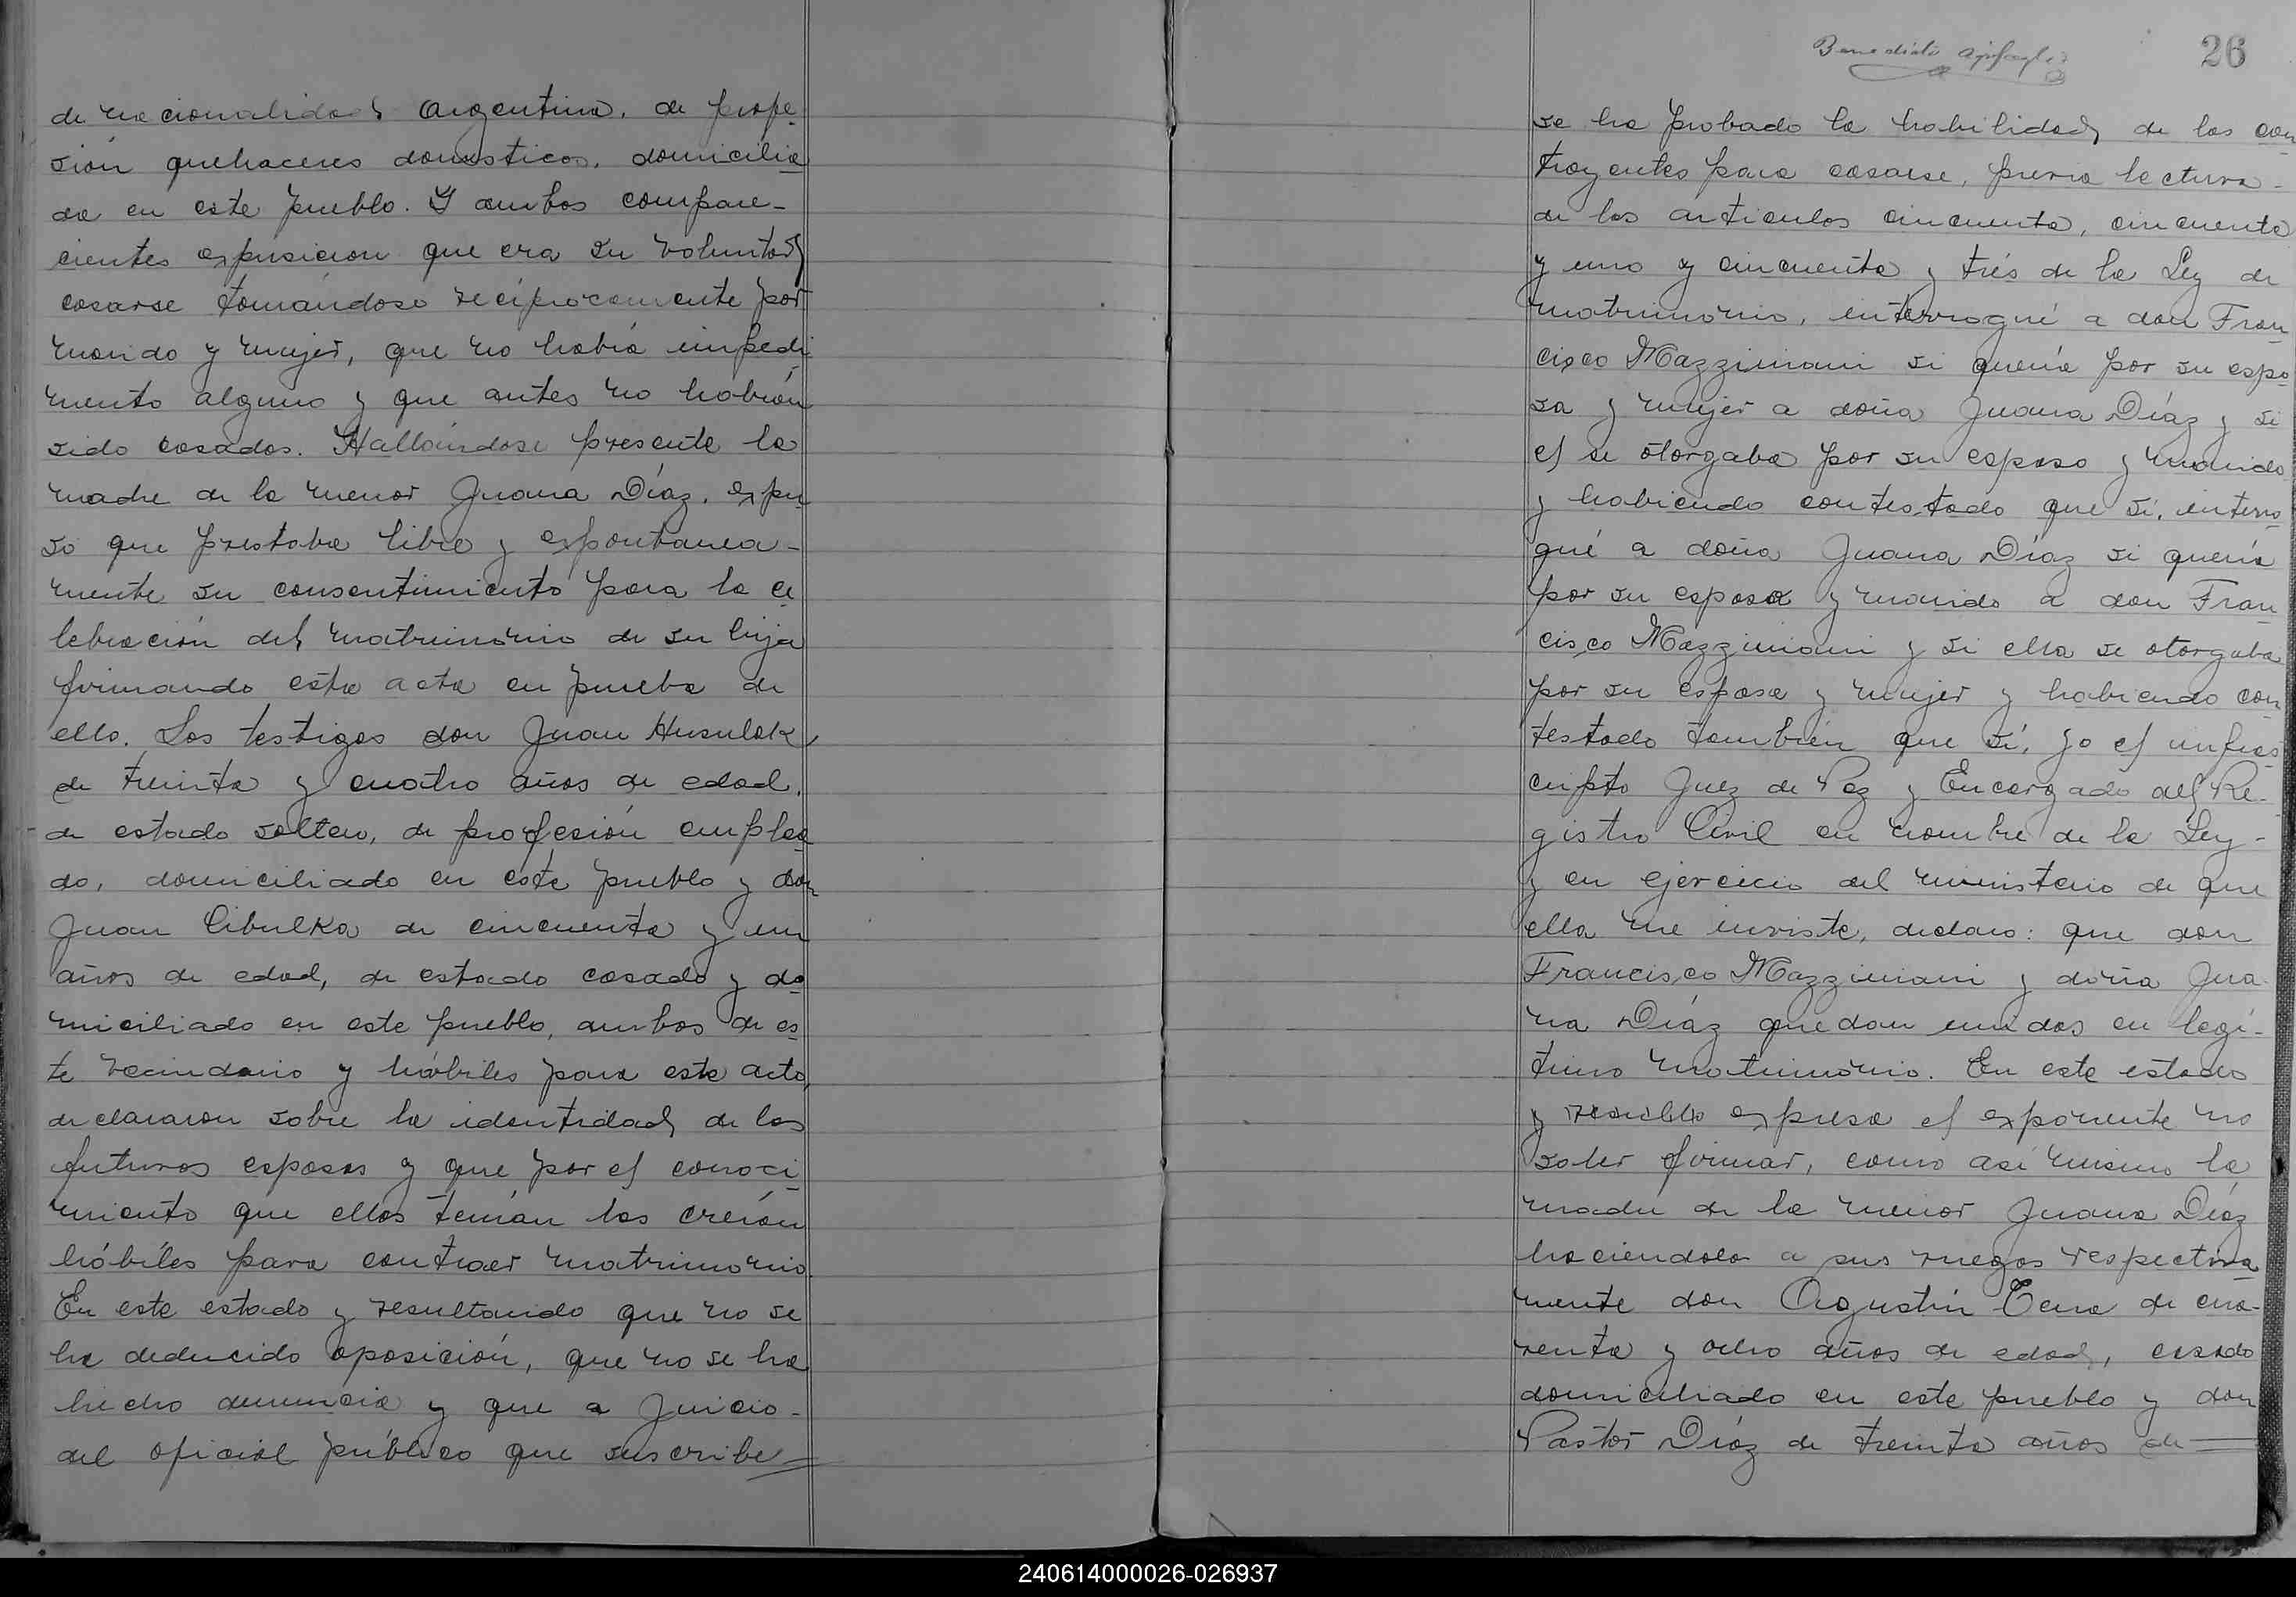 de nacionalidad argentina, de profe-
sión quehaceres domesticos, domicilia
da en este pueblo. Y ambos compare-
cientes expusieron que era su voluntad
casarse tomándose recíprocamente por
marido y mujer, que no había impedi-
mento alguno y que antes no habían
sido casados. Hallándose presente la
madre de la menor Juana Díaz, expu
so que prestaba libre y espontanea-
mente su consentimiento para la ce
lebración del matrimonio de su hija
firmando esta acta en prueba de
ello. Los testigos don Juan Husulak,
de treinta y cuatro años de edad,
de estado soltero, de profesión emplea
do, domiciliado en este pueblo y don
Juan Cibulka de cincuenta y un
años de edad, de estado casado y do
miciliado en este pueblo, ambos de es
te vecindario y hábiles para este acto,
declararon sobre la identidad de los
futuros esposos y que por el conoci
miento que ellos tenían los creían
hábiles para contraer matrimonio.
En este estado y resultando que no se
ha deducido oposición, que no se ha
hecho denuncia y que a Juicio-
del oficial público que suscribe
26
se ha probado la habilidad de los con
trayentes para casarse, previa lectura-
de los artículos cincuenta, cincuenta
y uno y cincuenta y trés de la Ley de
matrimonio, interrogué a don Fran
cisco Mazzimani si quería por su espo
sa y mujer a doña Juana Díaz y si
el se otorgaba por su esposo y marido
y habiendo contestado que sí, interro
gué a doña Juana Díaz si quería
por su esposo y marido a don Fran
cisco Mazzimani y si ella se otorgaba
por su esposa y mujer y habiendo con
testado también que sí, yo el infras
cripto Juez de Paz y Encargado del Re-
gistro Civil en nombre de la Ley-
y en ejercicio del ministerio de que
ella me inviste, declaro: que don
Francisco Mazzimani y doña Jua
na Díaz quedan unidos en legí-
timo matrimonio. En este estado
y expresa el exponente no
saber firmar, como así mismo la
madre de la menor Juana Díaz
haciendolo a sus ruegos respectiva
mente don Agustín de cua-
renta y ocho años de edad, casado
domiciliado en este pueblo y don
Pastor Díaz de treinta años de
240614000026-026937